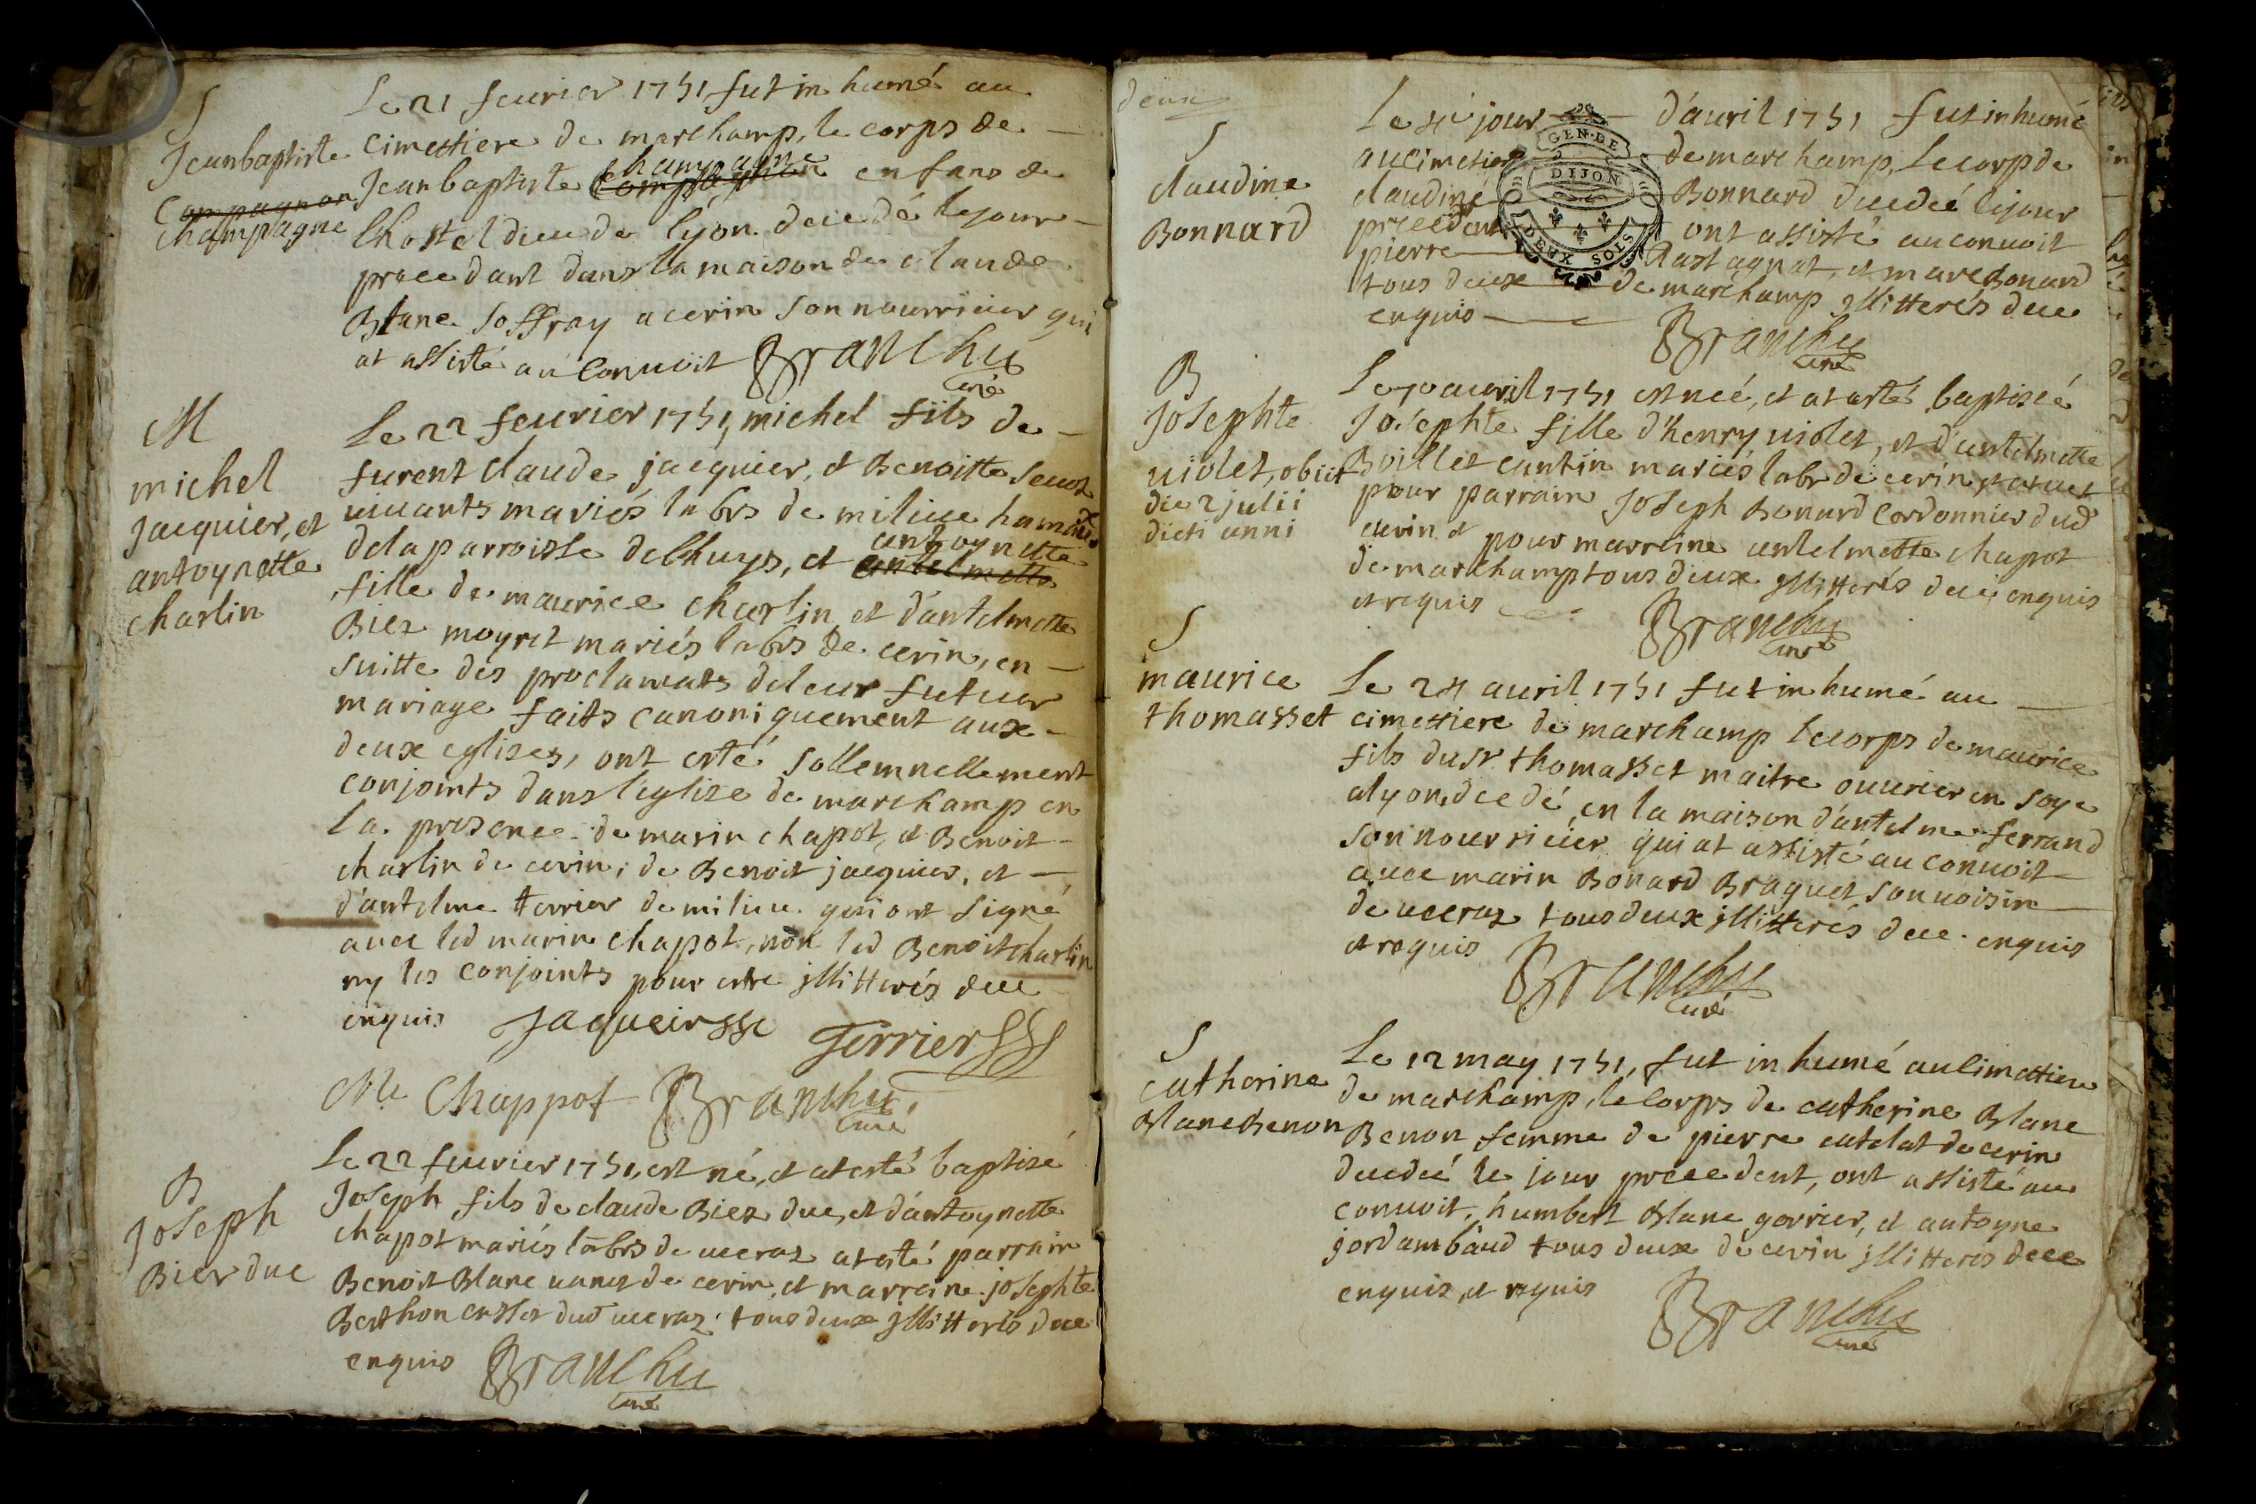 S
Jeanbaptiste
Compagnon
champagne
Le 21 feurier 1751 fut inhumé au
cimettiere de marchamp, le corps de
Jeanbaptiste champagne enfans de
lhostel dieu de lyon decedé le jour
precedant dans la maison de claude
Blanc Joffray a cerin son nourricier qui
at assisté au Conuoit Branchu
curé
M
michel
Jacquier, et
antoynette
charlin
Le 22 feurier 1751 michel fils de
furent claude jacquier, et Benoitte
uiuants mariés labrs de milieu
delaparroisse delhuys, et antoynette
antelmette
fille de maurice charlin et d'antelmette
Biez moyret mariés labrs de cerin, en
suitte des proclamats deleur futur
mariage faits canoniquement aux
deux eglises, ont esté sollemnellement
conjoints dans leglise de marchamp en
la presence de marin chapot, et Benoit
charlin de cerin; de Benoit jacquier, et
d'antelme terrier de milieu qui ont signé
auec led marin chapot, non led Benoit charlin
ny les conjoints pour estre jllitterés dece
enquis Jaqueirsse Terrier
Me Chappot Branchu
curé
B
Joseph
Bier duc
Le 22 feurier 1751, est né, et at esté baptisé
Joseph fils de claude Biez duc, et d'antoynette
chapot mariés labrs de ueeraz at esté parrain
Benoit Blanc uanet de cerin, et marraine josephte
Berthon dud ueeraz tous deux jllitterés dece
enquis Branchu
curé
deux
S
claudine
Bonnard
Le 4e jour d'auril 1751 fut inhumé
au cimetiere de marchamp, le corp de
claudine Bonnard decedé le jour
precedent ont assisté au conuoit
pierre et marc Bonard
tous deux de marchamp jllitterés dece
enquis
Branchu
curé
GEN. DE
DIJON
DEUX SOLS
B
Josephte
uiolet, obiit
die 2 julii
dicti anni
Le 10 auril 1751 est neé, et at estée baptiseé
Josephte fille d'henry uiolet, et d'antelmette
Boillet cantin mariés labr de cerin, et at eu
pour parrain Joseph Bonard Cordonnier dud
cerin et pour marreine antelmette chapot
de marchamp tous deux jllitterés dece enquis
et requis
Branchu
curé
S
maurice
thomasset
Le 24 auril 1751 fut inhumé au
cimettiere de marchamp le corps de maurice
fils du sr thomasset maitre ouurier en soye
a lyon, decedé en la maison d'antelme ferrand
son nourricier qui at assisté au conuoit
auec marin Bonard Braguet son uoisin
de ueeraz tous deux jllitterés dece enquis
et requis
Branchu
curé
S
catherine
Blanc Benon
Le 12 may 1751, fut inhumé au cimettiere
de marchamp, le Corps de catherine Blanc
Benon femme de pierre catelat de cerin
decedé le jour precedent, ont assisté au
conuoit, humbert Blanc gorrier, et antoyne
jordambaud tous deux de cerin jllitterés dece
enquis, et requis Branchu
curé